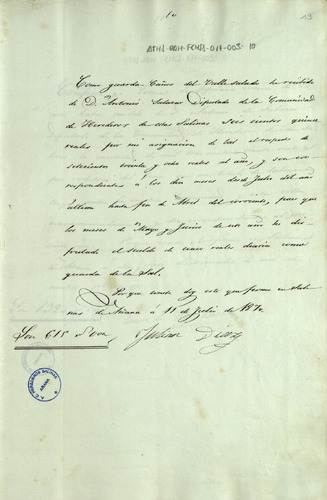 13
ATHA-DAH-FCNFL-011-003-10
Como guarda-Caños del Valle salado he recibido
de D. Antonio Salazar Diputado de la Comunidad
de Herederos de estas Salinas seis cientos quince
reales por mi asignacion de tal al respecto de
setecientos treinta y ocho reales al año, y son cor-
respondientes á los diez meses desde Julio del año
último hasta fin de Abril del corriente, pues que
los meses de Mayo y Junio de este año he dis-
frutado el sueldo de cinco reales diarios como
guarda de la Sal.
Por que conste doy este que firmo en Sali-
nas de Añana á 11 de Julio de
Son 615 rs. von.
Julian Diaz